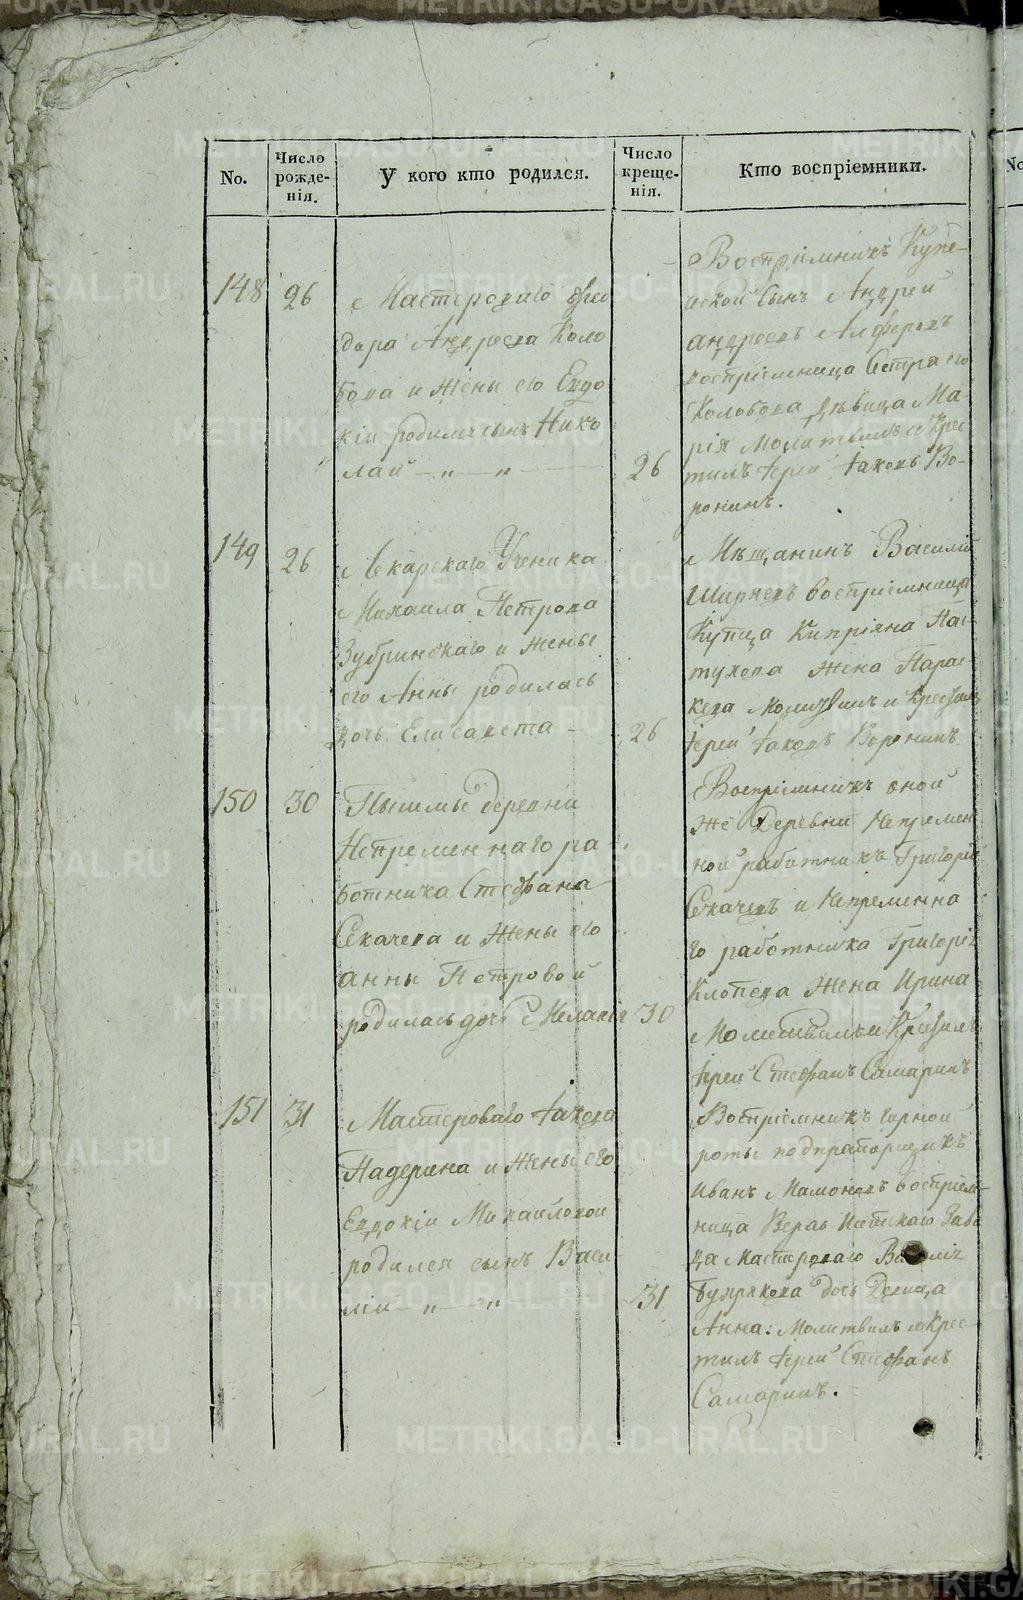 No.
Число рожде-
нія.
У кого кто родился.
Число креще-
нія.
Кто воспріемники.
148
26
Мастероваго Фео
дора Андреева Коло
бова и жены его Евдо
кіи родился сынъ Нико
лай — „ — „ —
26
Воспріемникъ Купе-
ческой сынъ Андрей
Андреевъ Алферовъ
воспріемница Петра его
Колобова дѣвица Ма-
рія Молитвилъ и Крес
тилъ Іерей Іаковъ Во-
ронинъ.
149
26
Лекарскаго Ученика
Михаила Петрова
Зубринскаго и жены
его Анны родилась
дочь Елисавета —
26
Мѣщанинъ Василій
Ширяевъ воспріемница
Купца Кипріяна Пас-
тухова жена Парас-
кева Молитвилъ и Крестилъ
Іерей Іаковъ Воронинъ
150
30
Пышмы деревни
Непременнаго ра
ботника Стефана
Секачева и жены его
Анны Петровой
родилась дочь Меланія
30
Воспріемникъ оной
же Деревни Непремен
ной работникъ Григорій
Секачевъ и Непременна
го работника Григорія
Клопова жена Ирина
Молитвилъ и Крестилъ
Іерей Стефанъ Самаринъ
151
31
Мастероваго Іакова
Падерина и жены его
Евдокіи Михайловой
родился сынъ Васи
лій — „ — „
31
Воспріемникъ Горной
роты подпрапорщикъ
Иванъ Мамоновъ воспріем-
ница Верхъ Исетскаго Заво
да Мастероваго Василія
дочь Девица
Анна: Молитвилъ и Крес
тилъ Іерей Стефанъ
Самаринъ.
METRIKI.GASO-URAL.RU